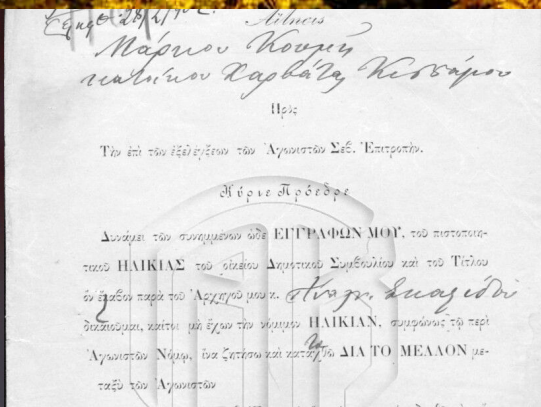 28/2/
Αἴτησις
Μάρκου Κουμῆ
κατοίκου Χαρβάτα Κισσάμου
Πρὸς
Τὴν ἐπὶ τῶν ἐξελέγξεων τῶν Ἀγωνιστῶν Σεβ. Ἐπιτροπήν.
Κύριε Πρόεδρε
Δυνάμει τῶν συνημμένων ὧδε ΕΓΓΡΑΦΩΝ ΜΟΥ, τοῦ πιστοποιη-
τικοῦ ΗΛΙΚΙΑΣ τοῦ οἰκείου Δημοτικοῦ Συμβουλίου καὶ τοῦ Τίτλου
ὃν ἔλαβον παρὰ τοῦ Ἀρχηγοῦ μου κ. Ἀναγν. Σκαλίδου
δικαιοῦμαι, καίτοι μὴ ἔχων τὴν νόμιμον ΗΛΙΚΙΑΝ, συμφώνως τῷ περὶ
Ἀγωνιστῶν Νόμῳ, ἵνα ζητήσω καὶ καταχθῶ ΔΙΑ ΤΟ ΜΕΛΛΟΝ με-
ταξὺ τῶν Ἀγωνιστῶν